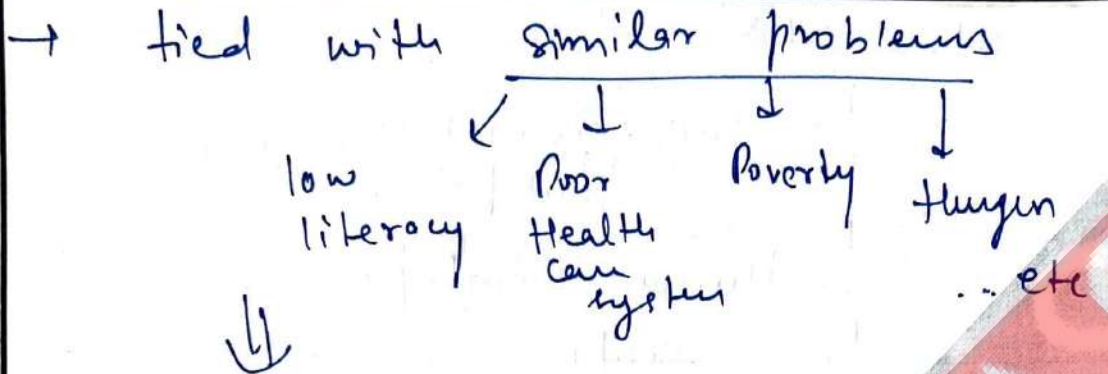 → tied with similar problems
low literacy
Poor Health care system
Poverty
Hunger
... etc